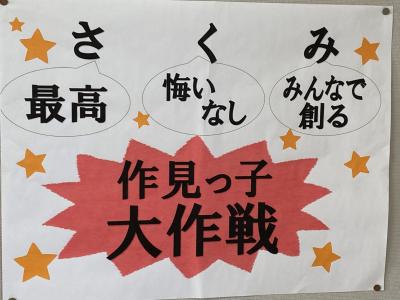 さ く み
最高
悔い
なし
みんなで
創る
作見っ子
大作戦